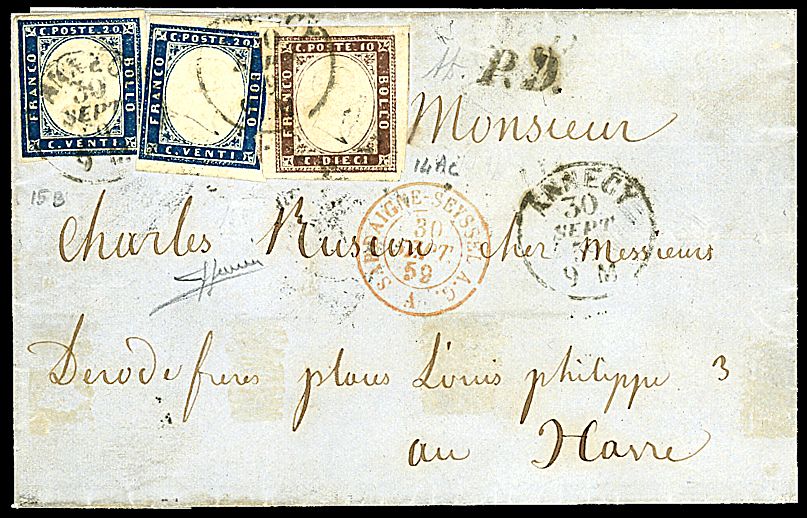 C. POSTE. 20
FRANCO
BOLLO
C. VENTI
C. POSTE. 20
FRANCO
BOLLO
C. VENTI
C. POSTE. 10
FRANCO
BOLLO
C. DIECI
ANNECY
30
SEPT
9 M
P.D.
Monsieur
15B
14Ac
ANNECY
30
SEPT
9 M
SARDAIGNE-SEYSSEL A.G.V
30
SEPT
59
Charles Rusion cher Messieurs
Derode freres place Louis philippe 3
au Havre